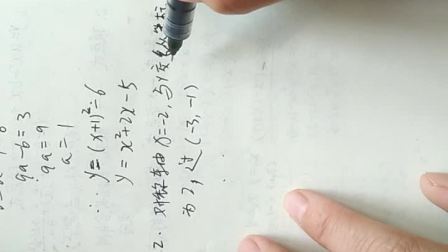 9a-b=3
9a=9
a=1
∴ y=(x+1)²-6
y=x²+2x-5
2. 对称轴 x=-2, 与y交点
为2, 过(-3,-1)